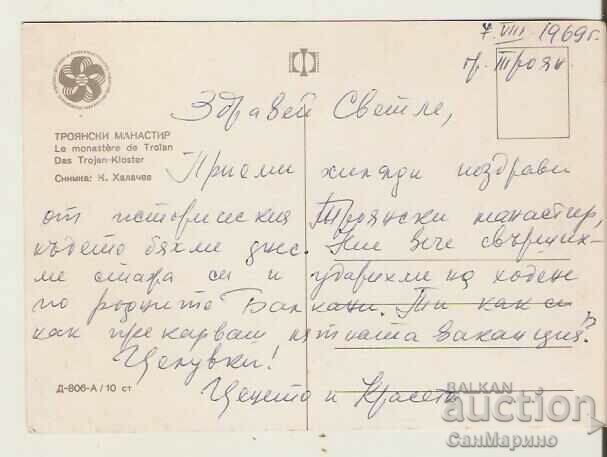 7. VIII 1969 г.
гр. Троян
Здравей Светле,
ТРОЯНСКИ МАНАСТИР
Le monastère de Troïan
Das Trojan-Kloster
Снимка: К. Халачев
Приеми хиляди поздрави
от историческия Троянски манастир,
където бяхме днес. Ние вече свърших-
ме стажа си и ударихме на ходене
по родните Балкани. Ти как си
как прекарваш лятната ваканция?
Целувки!
Цецето и Красето
Д-806-А/10 ст
BALKAN
auction
СанМарино